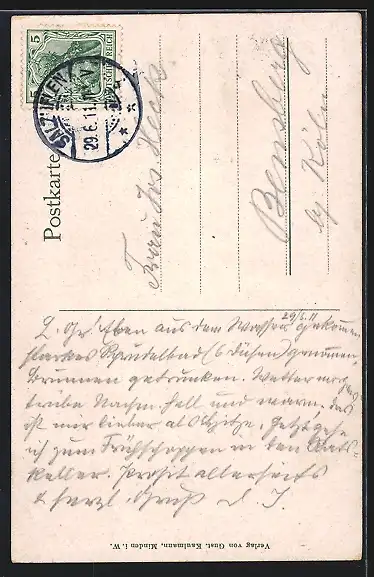 5
DEUTSCHES REICH
SALZUFLEN
29.6.11
Postkarte
Frau Jos.
Bensberg
b/ Köln
29/6.11
L. Gr! Eben aus dem Wasser gekommen
starkes Sprudelbad (6 Düsen) genommen,
Brunnen getrunken. Wetter morgens
trübe Nachm. hell und warm, das
ist mir lieber als Hitze. Jetzt gehe
ich zum Frühschoppen in den Rats-
keller. Prosit allerseits
& herzl. Gruß d. J.
Verlag von Gust. Kaufmann, Minden i. W.